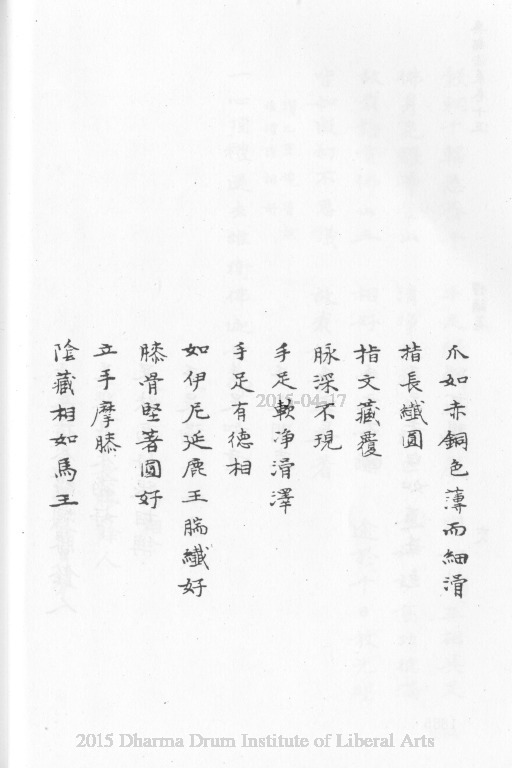 爪如赤銅色薄而細滑
指長纖圓
指文藏覆
脉深不現
手足軟净滑澤
手足有德相
如伊尼延鹿王腨纖好
膝骨堅著圓好
立手摩膝
陰藏相如馬王
2015-04-17
2015 Dharma Drum Institute of Liberal Arts